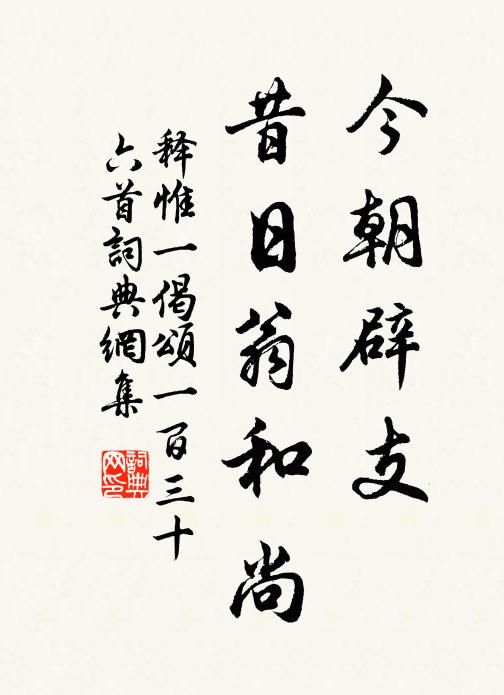 今朝辟支
昔日翁和尚
释惟一偈頌一百三十
六首詞典網集
詞典网印